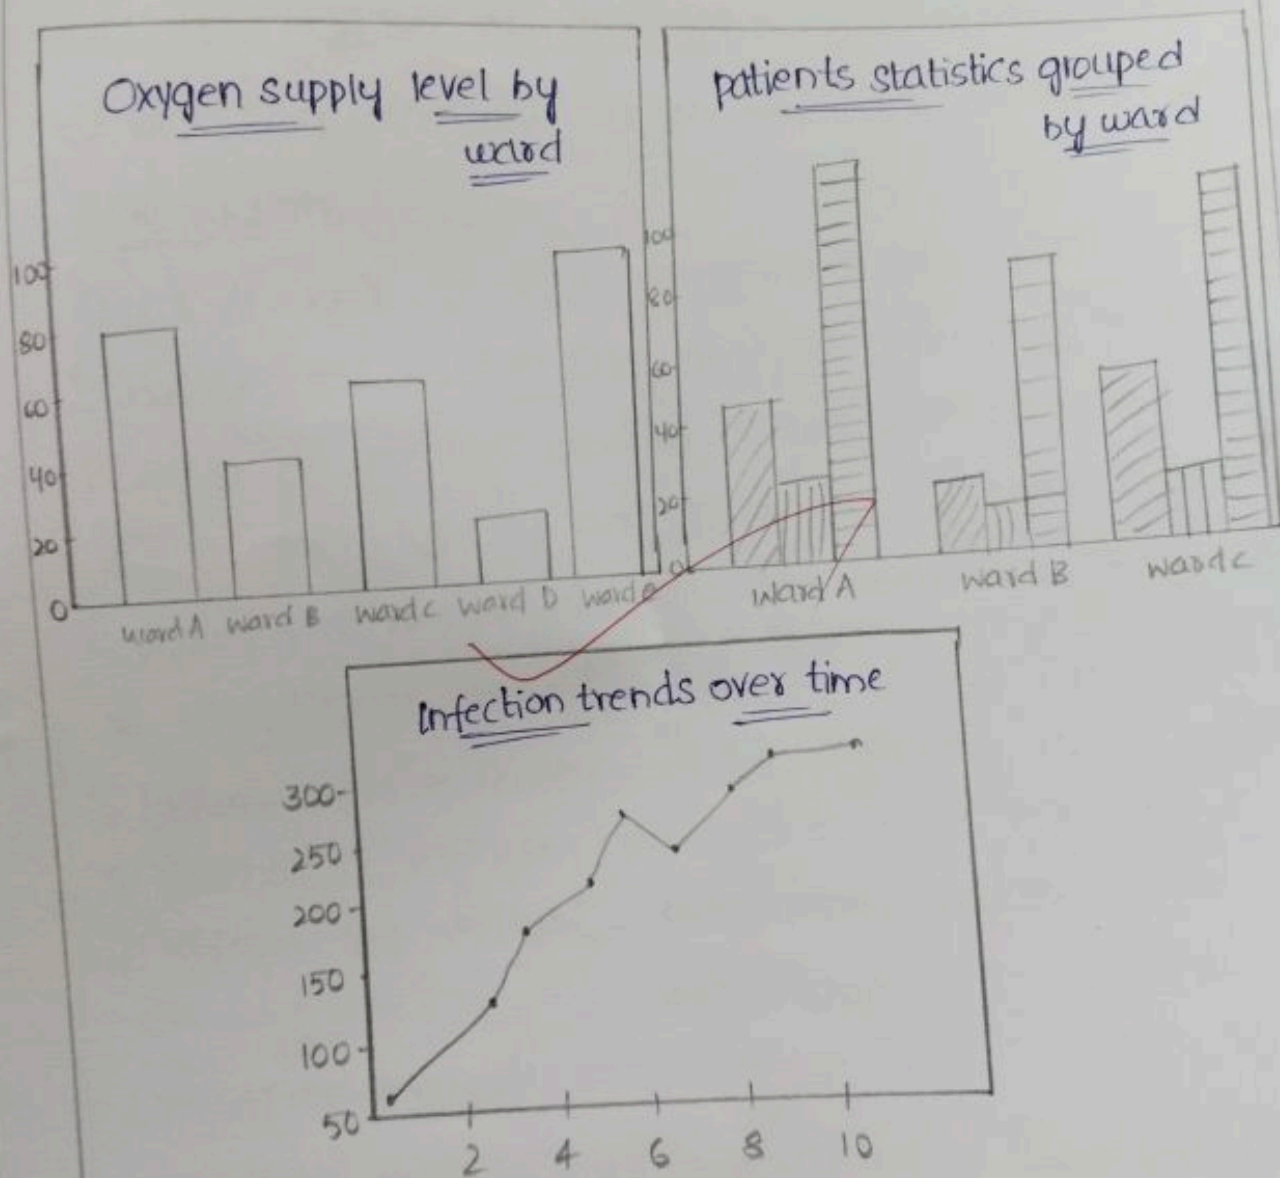 Oxygen supply level by
ward
100
80
60
40
20
0
ward A ward B ward C ward D ward
patients statistics grouped
by ward
100
80
60
40
20
0
ward A ward B ward C
Infection trends over time
300
250
200
150
100
50
2 4 6 8 10